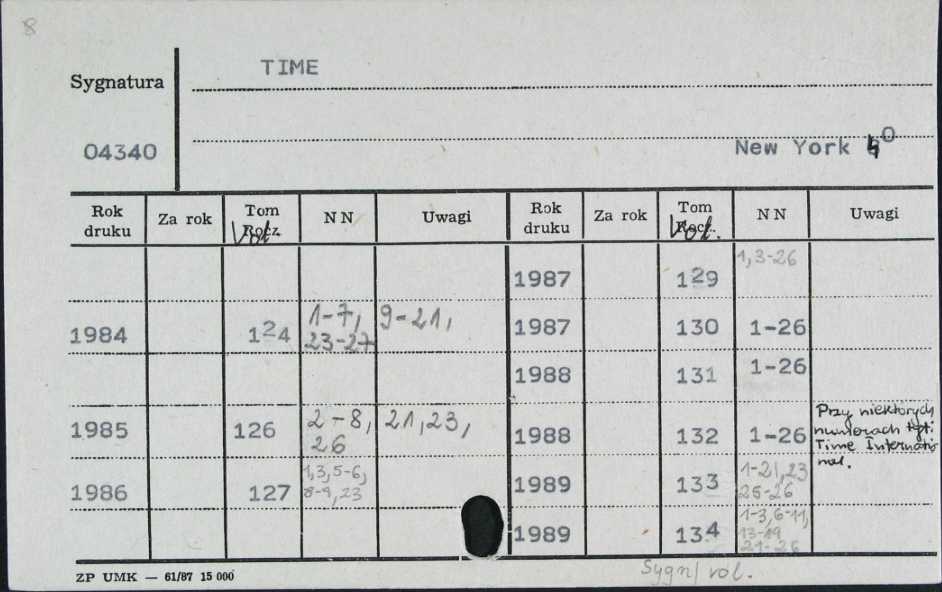 8
TIME
Sygnatura
04340
New York 40
Rok druku Za rok Tom Rocz. Vol. NN Uwagi Rok druku Za rok Tom Rocz. Vol. NN Uwagi
1987 129 1,3-26
1984 124 1-7, 9-21, 23-27 1987 130 1-26
1988 131 1-26
1985 126 2-8, 21,23, 26 1988 132 1-26 Przy niektorych
numerach tyt:
Time Internatio
nal.
1986 127 1,3,5-6, 8-9,23 1989 133 1-21,23 25-26
1989 134 1-3,6-11, 13-19 21-26
Sygn/vol.
ZP UMK — 61/87 15 000